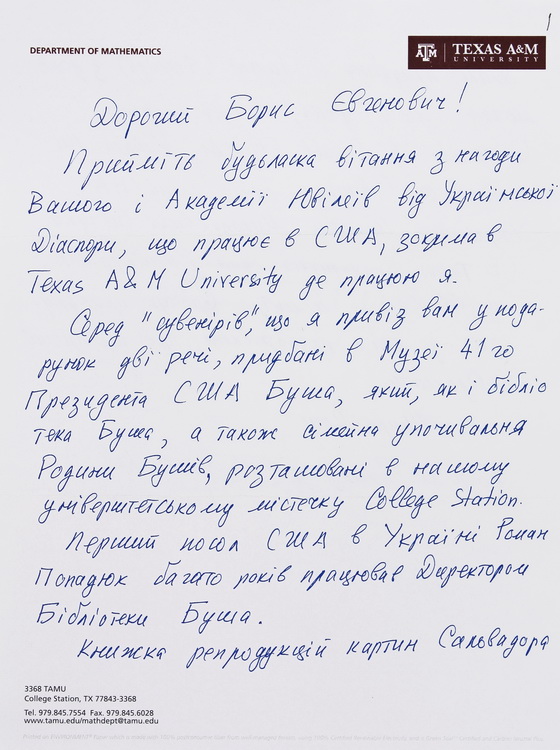 1
DEPARTMENT OF MATHEMATICS
ATM TEXAS A&M
UNIVERSITY
Дорогий Борис Євгенович!
Прийміть будьласка вітання з нагоди
Вашого і Академії Ювілеїв від Української
Діаспори, що працює в США, зокрима в
Texas A&M University де працюю я.
Серед "сувенірів", що я привіз вам у пода-
рунок дві речі, придбані в Музеї 41го
Президента США Буша, який, як і бібліо
тека Буша, а також сімейна упочивальня
Родини Бушів, розташовані в нашому
університетському містечку College Station.
Перший посол США в Україні Роман
Попадюк багато років працював Директором
Бібліотеки Буша.
Книжка репродукцій картин Сальвадора
3368 TAMU
College Station, TX 77843-3368
Tel. 979.845.7554 Fax. 979.845.6028
www.tamu.edu/mathdept@tamu.edu